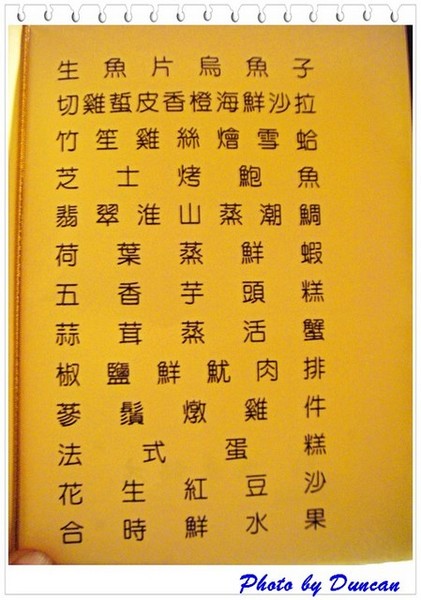 生魚片烏魚子
切雞蜇皮香橙海鮮沙拉
竹笙雞絲燴雪蛤
芝士烤鮑魚
翡翠淮山蒸潮鯛
荷葉蒸鮮蝦
五香芋頭糕
蒜茸蒸活蟹
椒鹽鮮魷肉排
蔘鬚燉雞件
法式蛋糕
花生紅豆沙
合時鮮水果
Photo by Duncan